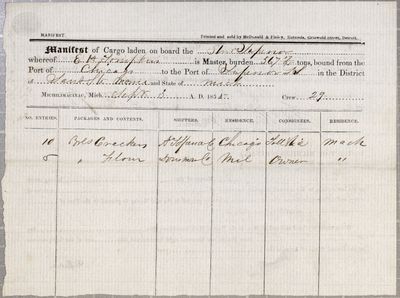 MANIFEST. Printed and sold by McDonald & Fisk, Griswold street, Detroit.
Manifest of Cargo laden on board the Str. Superior
whereof E. B. Tompkins is Master, burden 567 tons, bound from the
Port of Chicago to the Port of Superior in the District
and State of
MICHILIMACINAC, Mich. Sept 3 A. D. 185 Crew 29
NO. ENTRIES. PACKAGES AND CONTENTS. SHIPPERS. RESIDENCE. CONSIGNEES. RESIDENCE.
10 Bbls Crackers Chicago Mack
5 " Flour Mil Owner "